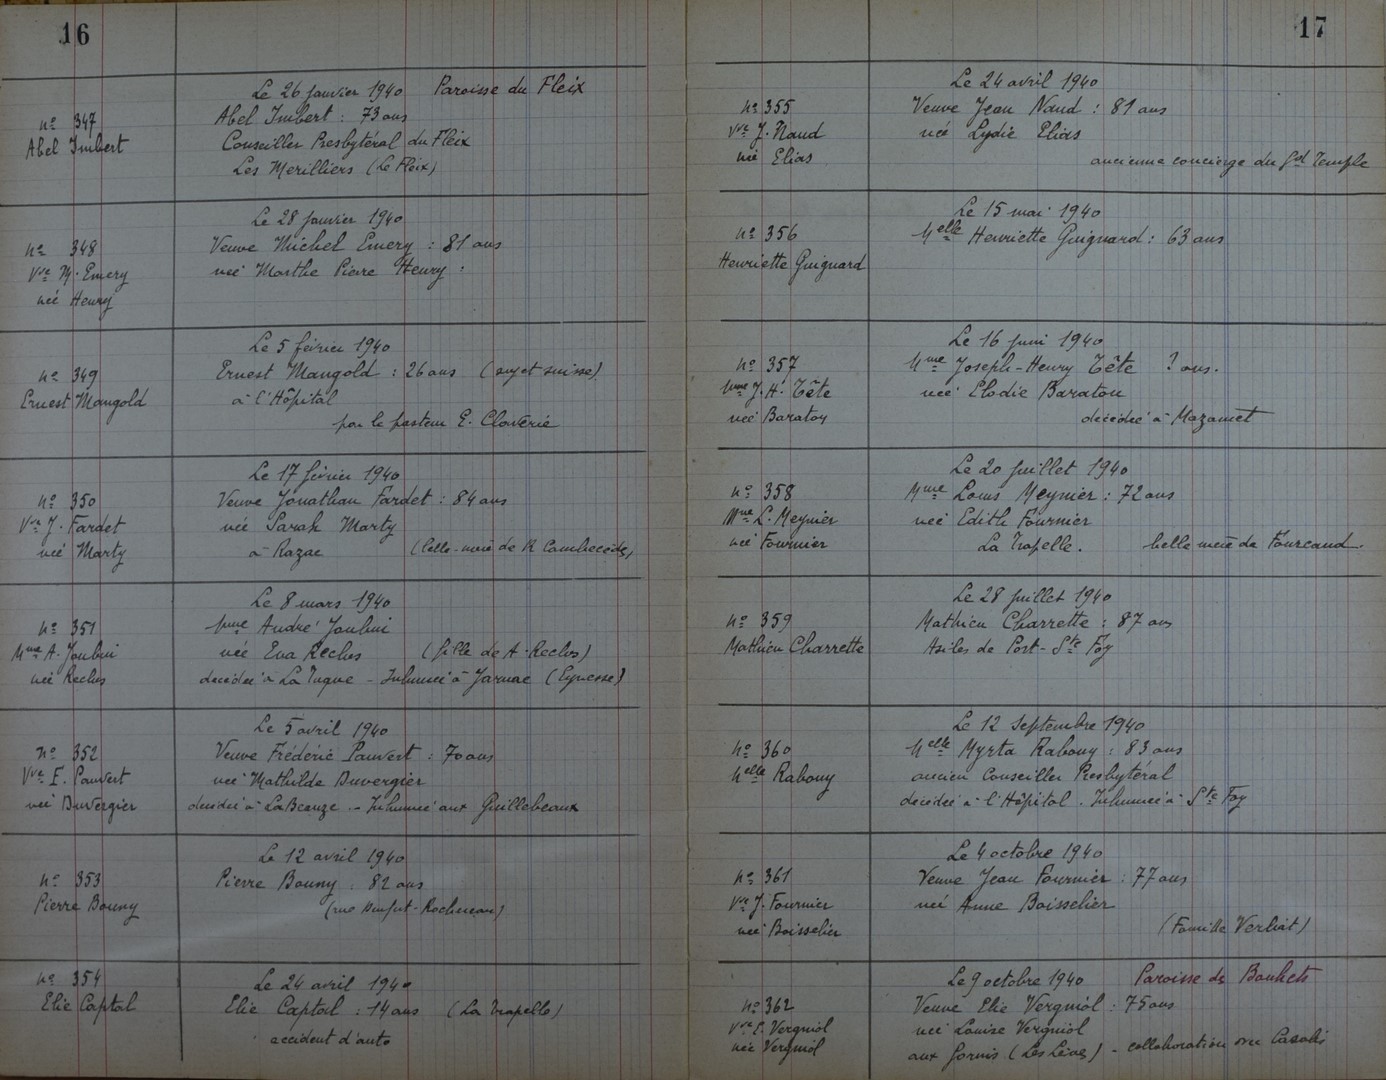 16
Le 26 janvier 1940 Paroisse du Fleix
nº 347
Abel Imbert
Abel Imbert : 73 ans
Conseiller Presbytéral du Fleix
Les Merilliers (Le Fleix)
Le 28 janvier 1940
nº 348
Vve M. Emery
née Henry
Veuve Michel Emery : 81 ans
née Marthe Pierre Henry :
Le 5 février 1940
nº 349
Ernest Mangold
Ernest Mangold : 26 ans (sujet suisse)
à l'Hôpital
par le pasteur E. Claverie
Le 17 février 1940
nº 350
Vve J. Fardet
née Marty
Veuve Jonathan Fardet : 84 ans
née Sarah Marty
à Razac (belle-mère de R. Combecède)
Le 8 mars 1940
nº 351
Mme A. Joubui
née Reclus
Mme André Joubui
née Eva Reclus (fille de A. Reclus)
décédée à La Tuque - Inhumée à Jarnac (Eynesse)
Le 5 avril 1940
nº 352
Vve F. Pauvert
née Duvergier
Veuve Frédéric Pauvert : 70 ans
née Mathilde Duvergier
décédée à La Beauze - Inhumée aux Guillebeaux
Le 12 avril 1940
nº 353
Pierre Bouny
Pierre Bouny : 82 ans
(rue Denfert-Rochereau)
nº 354
Elie Captal
Le 24 avril 1940
Elie Captal : 14 ans (La Trapelle)
accident d'auto
17
Le 24 avril 1940
nº 355
Vve J. Naud
née Elias
Veuve Jean Naud : 81 ans
née Lydie Elias
ancienne concierge du Gd Temple
Le 15 mai 1940
nº 356
Henriette Guignard
Melle Henriette Guignard : 63 ans
Le 16 juin 1940
nº 357
Mme J. H. Tête
née Baratou
Mme Joseph-Henry Tête ? ans.
née Elodie Baratou
décédée à Mazamet
Le 20 juillet 1940
nº 358
Mme L. Meynier
née Fournier
Mme Louis Meynier : 72 ans
née Edith Fournier
La Trapelle. belle mère de Fourcaud.
Le 28 juillet 1940
nº 359
Mathieu Charrette
Mathieu Charrette : 87 ans
Asiles de Port-Ste Foy
Le 12 septembre 1940
nº 360
Melle Rabouy
Melle Myrta Rabouy : 83 ans
ancien Conseiller Presbytéral
décédée à l'Hôpital. Inhumée à Ste Foy
Le 4 octobre 1940
nº 361
Vve J. Fournier
née Boisselier
Veuve Jean Fournier : 77 ans
née Anne Boisselier
(Famille Verliat)
Le 9 octobre 1940 Paroisse des Bouhets
nº 362
Vve E. Vergniol
née Vergniol
Veuve Elie Vergniol : 75 ans
née Louise Vergniol
aux (Les Lèves) - collaboration avec